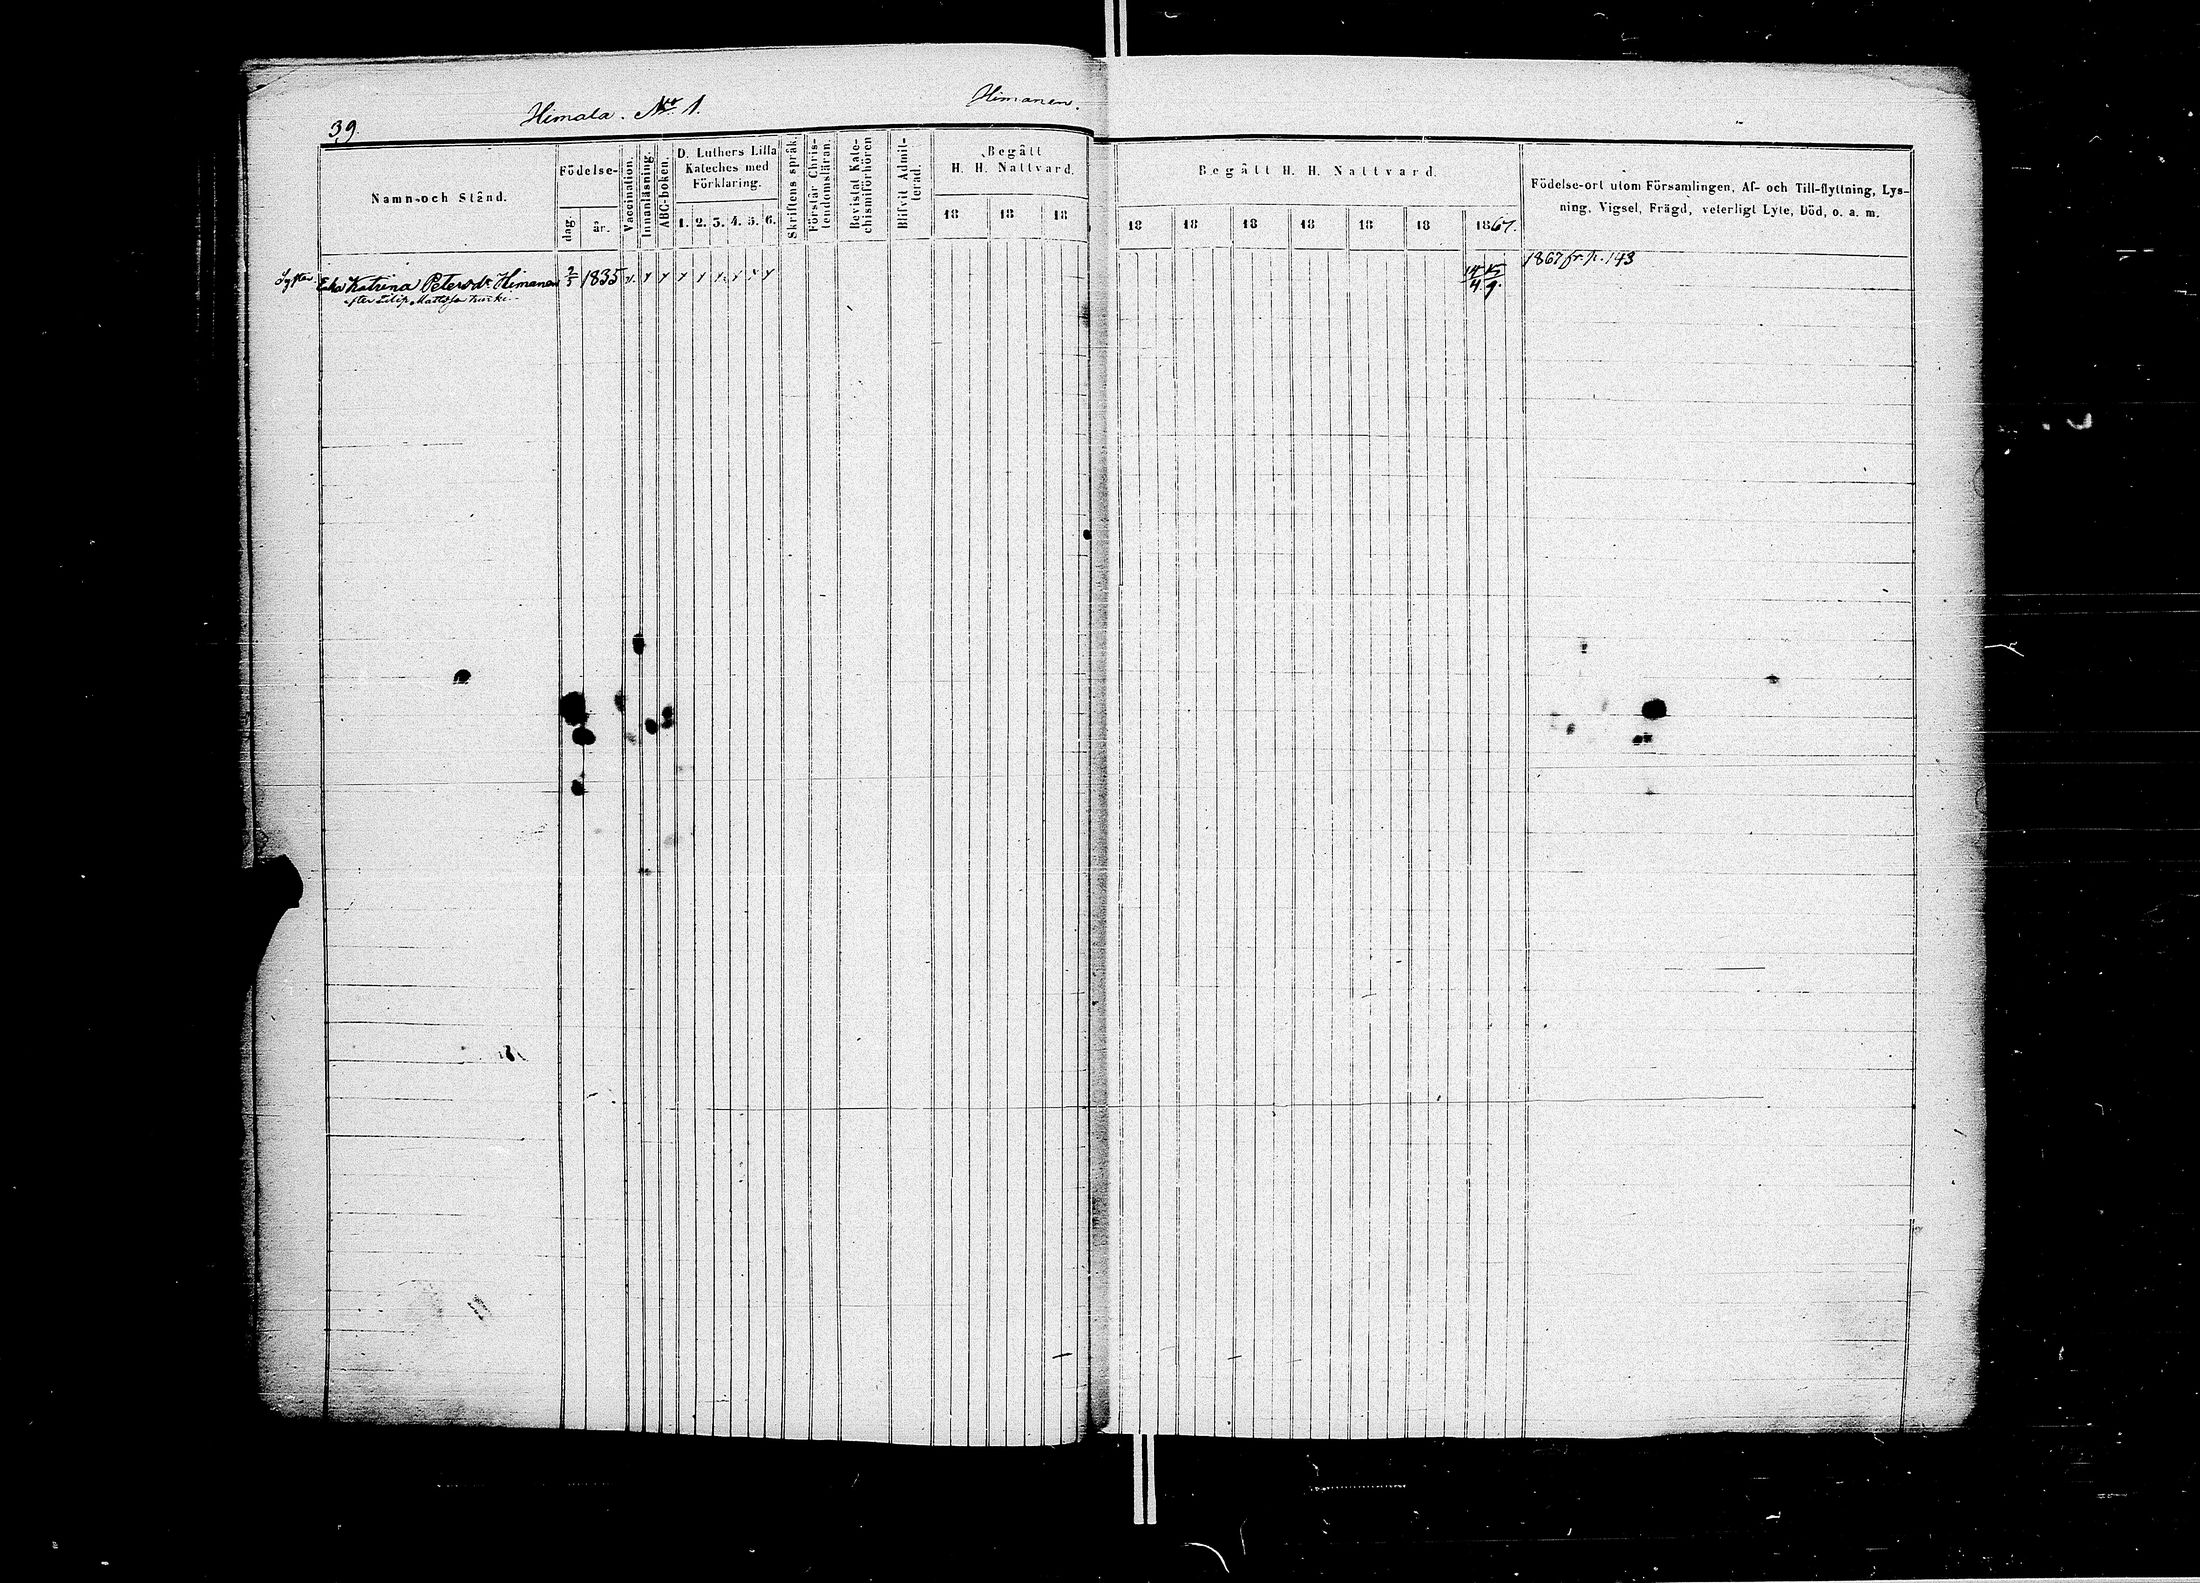 39.
Himala. No 1.
Himanen.
Namn och Stånd.
Födelse-
dag
år.
Vaccination.
Innanläsning.
ABC-boken.
D. Luthers Lilla
Kateches med
Förklaring.
1. 2. 3. 4. 5. 6.
Skriftens språk.
Förstår Chris-
tendomsläran.
Bevistat Kate-
chismiförhören
Blifvit Admit-
terad.
Begått
H. H. Nattvard.
18 18 18
Begått H. H. Nattvard.
18 18 18 18 18 18 1867.
Födelse-ort utom Församlingen, Af- och Till-flyttning, Lys-
ning, Vigsel, Frägd, veterligt Lyte, Död, o. a. m.
1867 fr. p. 143
Katrina Petersdr Himanen 2/5 1835